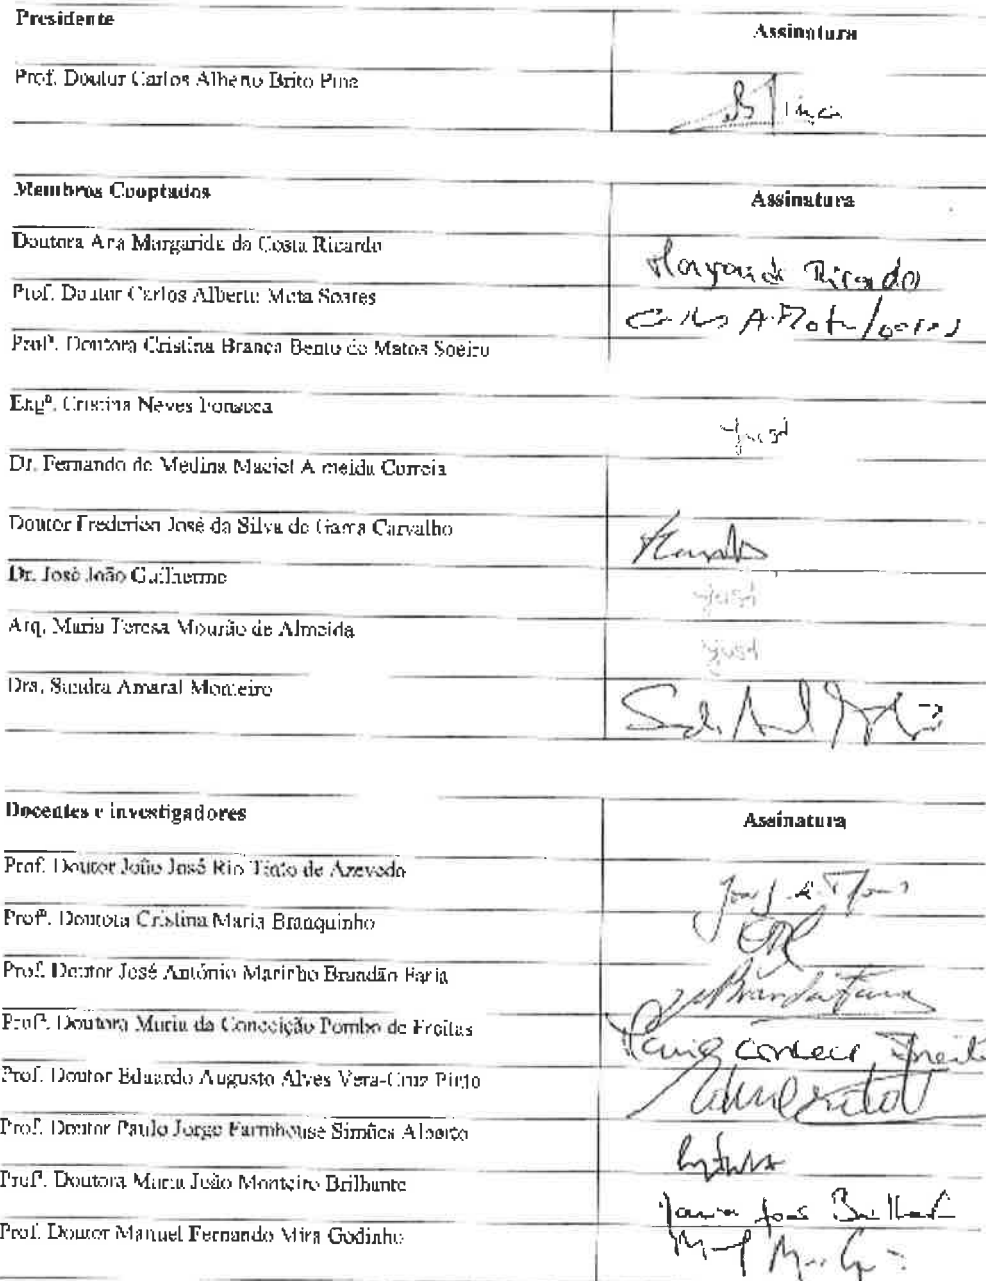 Presidente Assinatura
Prof. Doutor Carlos Alberto Brito Pina
Membros Cooptados Assinatura
Doutora Ana Margarida da Costa Ricardo Margarida Ricardo
Prof. Doutor Carlos Alberto Mota Soares Carlos A. Mota Soares
Profª. Doutora Cristina Branca Bento de Matos Soeiro
Engª. Cristina Neves Fonseca just
Dr. Fernando de Medina Maciel Almeida Correia
Doutor Frederico José da Silva de Gama Carvalho
Dr. José João Guilherme just
Arq. Maria Teresa Mourão de Almeida just
Dra. Sandra Amaral Monteiro
Docentes e investigadores Assinatura
Prof. Doutor João José Rio Tinto de Azevedo
Profª. Doutora Cristina Maria Branquinho
Prof. Doutor José António Marinho Brandão Faria
Profª. Doutora Maria da Conceição Pombo de Freitas
Prof. Doutor Eduardo Augusto Alves Vera-Cruz Pinto
Prof. Doutor Paulo Jorge Farmhouse Simões Alberto
Profª. Doutora Maria João Monteiro Brilhante Maria João Brilhante
Prof. Doutor Manuel Fernando Mira Godinho